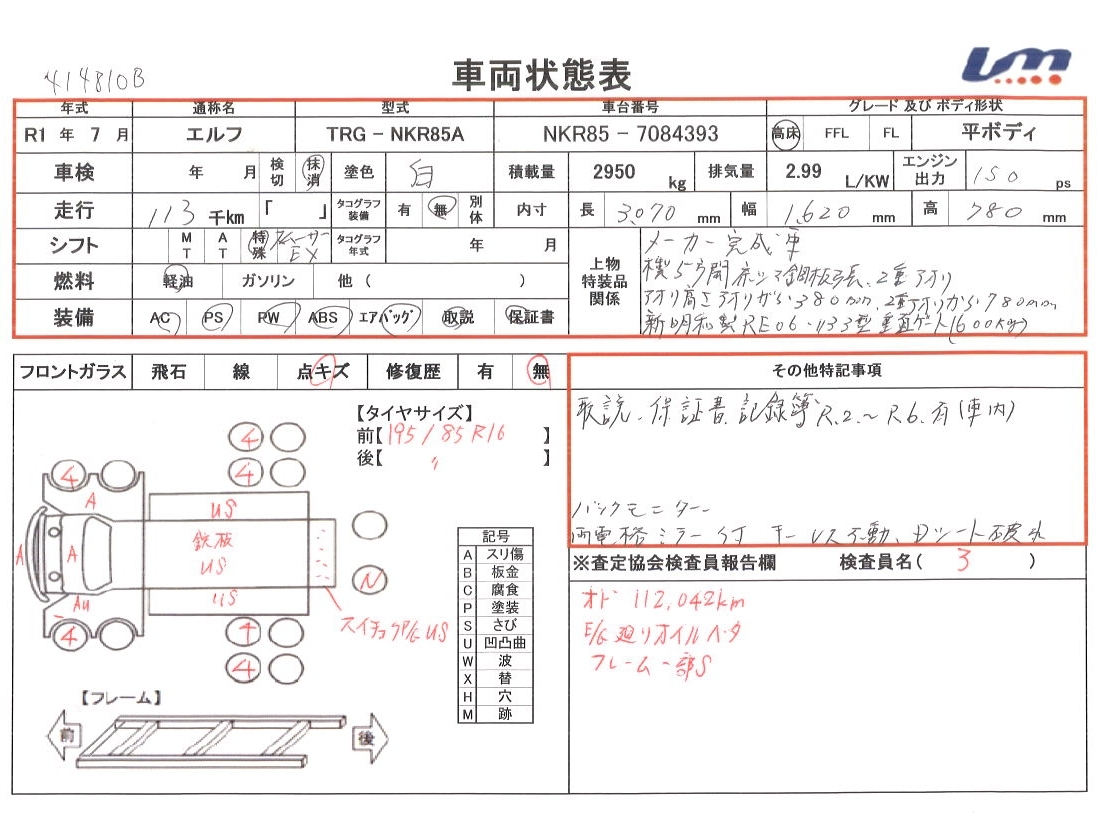 414810B
車両状態表
年式 通称名 型式 車台番号 グレード 及び ボディ形状
R1 年 7 月 エルフ TRG - NKR85A NKR85 - 7084393 高床 FFL FL 平ボディ
車検 年 月 検切 抹消 塗色 白 積載量 2950 kg 排気量 2.99 L/KW エンジン出力 150 ps
走行 113 千km 「 」 タコグラフ装備 有 無 別体 内寸 長 3,070 mm 幅 1,620 mm 高 780 mm
シフト MT AT 特殊 スムーサーEX タコグラフ年式 年 月
燃料 軽油 ガソリン 他 ( )
装備 AC PS PW ABS エアバッグ 取説 保証書
上物特装品関係
メーカー完成車
横5方開 床ツマ鋼板張、2重アオリ
アオリ高さアオリから380mm、2重アオリから780mm
新明和製RE06-1133型 垂直ゲート(600kg)
フロントガラス 飛石 線 点キズ 修復歴 有 無
その他特記事項
取説、保証書、記録簿 R.2.~R6.有(車内)
バックモニター
両電格ミラー付 キーレス不動、Dシート破れ
※査定協会検査員報告欄 検査員名( 3 )
オド 112,042km
E/G廻りオイルベタ
フレーム一部S
【タイヤサイズ】
前【195/85R16 】
後【 〃 】
4
4
4
A
US
鉄板
US
US
A
A
AU
N
4
4
4
スイチョクP/G US
記号
A スリ傷
B 板金
C 腐食
P 塗装
S さび
U 凹凸曲
W 波
X 替
H 穴
M 跡
【フレーム】
前
後